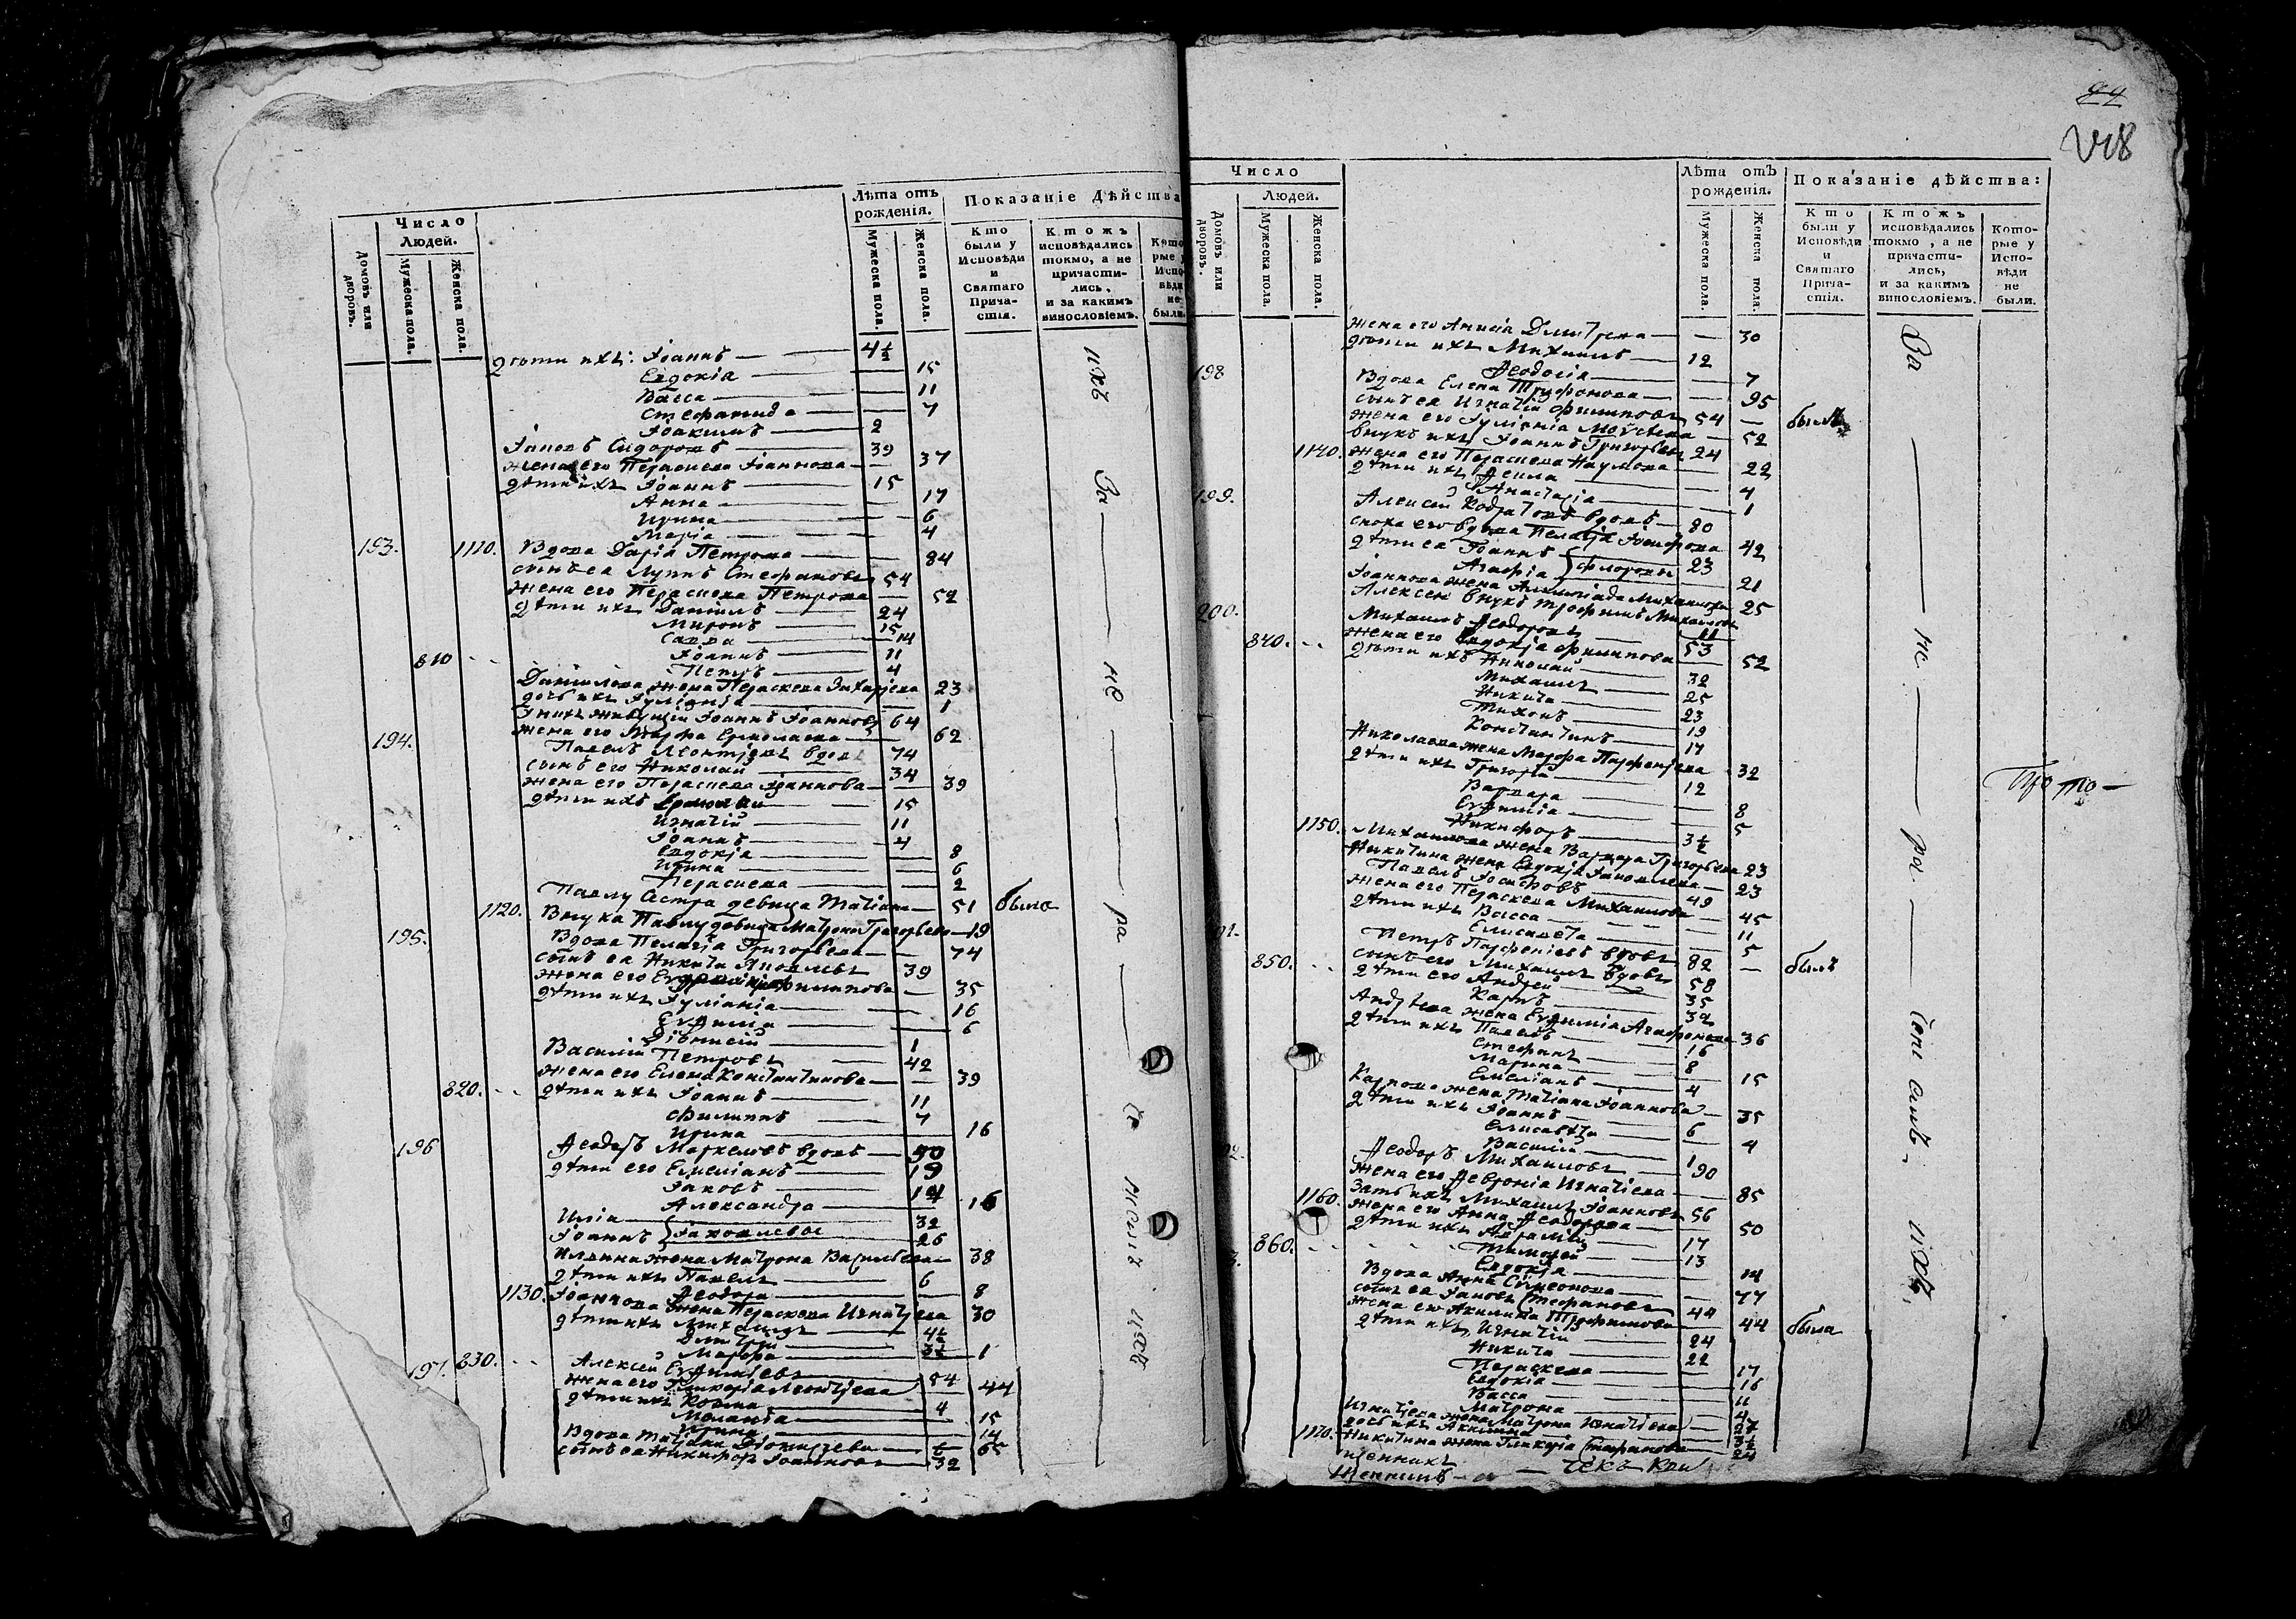 Число
Людей.
Лѣта отъ рожденія.
Показаніе Дѣйства
Домовъ или дворовъ.
Мужеска пола.
Женска пола.
Мужеска пола.
Женска пола.
Кто были у Исповѣди и Святаго Прича-стія.
Ктожъ исповѣдались токмо, а не причасти-лись, и за какимъ винословіемъ.
Кото рые у Испо- вѣди не были.
дѣти ихъ: Іоаннъ 4½
Евдокіа 15
Васса 11
Стефанида 7
Іоакимъ 2
Іаковъ Сидоровъ 39
жена его Параскева Іоаннова 37
дѣти ихъ Іоаннъ 15
Анна 17
Ирина 6
Маріа 4
193. 1110. Вдова Даріа Петрова 84
сынъ еа Луппъ Стефановъ 54
жена его Параскева Петрова 52
дѣти ихъ Даніилъ 24
Миронъ 15
Савва 14
Іоаннъ 11
810 Петръ 4
Даніилова жена Параскева Захаріева 23
дочь ихъ Іуліаніа 1
У нихъ живущій Іоаннъ Іоанновъ 64
жена его Марфа Ермолаева 62
194. Павелъ Леонтіевъ вдовъ 74
сынъ его Николай 34
жена его Параскева Іоаннова 39
дѣти ихъ Ермолай 15
Игнатій 11
Іоаннъ 4
Евдокіа 8
Ирина 6
Параскева 2
Павлу сестра девица Матіана 51 была
1120. Внука Павлу девица Матрона Григорьева 19
195. Вдова Пелагіа Григорьева 74
сынъ еа Никита Іаковлевъ 39
жена его Филиппова 35
дѣти ихъ Іуліаніа 16
Евфиміа 6
Діонисій 1
Василій Петровъ 42
жена его Елена Константинова 39
820. дѣти ихъ Іоаннъ 11
Филиппъ 7
Ирина 16
196 Ѳеодоръ Маркеловъ вдовъ 50
дѣти его Емеліанъ 19
Іаковъ 14
Александра 16
Иліа 32
Іоаннъ } Іаковлевы 26
Ильина жена Матрона Васильева 38
дѣти ихъ Павелъ 6
Ѳеодора 8
1130. Іоаннова жена Параскева Игнатіева 30
дѣти ихъ Михаилъ 4½
Димитрій 3½
Марфа 1
197. 830. Алексей Евфиміевъ 54
жена его Гликеріа Леонтіева 44
дѣти ихъ Козма 4
Меланіа 15
Ирина 14
Вдова Татіана 65
сынъ еа Никифоръ Іоанновъ 32
ихъ За не ра че ніемъ ихъ

94
Число
Людей.
Лѣта отъ рожденія.
Показаніе дѣйства:
Домовъ или дворовъ.
Мужеска пола.
Женска пола.
Мужеска пола.
Женска пола.
Кто были у Исповѣди и Святаго Прича-стія.
Ктожъ исповѣдались токмо, а не причасти-лись, и за какимъ винословіемъ.
Кото-рые у Испо-вѣди не были.
жена его Анисіа Дмитріева 30
дѣти ихъ Михаилъ 12
Ѳеодосіа 7
198 Вдова Елена Трифонова 95
сынъ еа Игнатій Филипповъ 54 были
жена его Іуліаніа Моѵсѣева 52
внукъ ихъ Іоаннъ Григорьевъ 24
1140. жена его Параскева Наумова 22
дѣти ихъ Ѳекла 4
Анастасіа 1
199. Алексей Кодратовъ вдовъ 80
сноха его вдова Пелагіа Іосифова 42
дѣти еа Іоаннъ 23
Агафіа } Флоровы 21
Іоаннова жена Михаилова 25
Алексею внукъ Трофимъ Михаиловъ 11
200. Михаилъ Ѳеодоровъ 53
840. жена его Евдокіа Филиппова 52
дѣти ихъ Николай 32
Михаилъ 25
Никита 23
Тихонъ 19
Константинъ 17
Николаева жена Марфа Парфеніева 32
дѣти ихъ Григорій 12
Варвара 8
Евфиміа 5
Никифоръ 3½
1150. Михаилова жена Варвара Григорьева 23
Никитина жена Евдокіа Іаковлева 23
Павелъ Іосифовъ 49
жена его Параскева Михаилова 45
дѣти ихъ Васса 11
Елисавета 5
201. Петръ Парфеніевъ вдовъ 82 былъ
850. сынъ его Михаилъ вдовъ 58
дѣти его Андрей 35
Карпъ 32
Андреева жена Евфиміа Агафонова 36
дѣти ихъ Павелъ 16
Стефанъ 8
Марина 15
Емеліанъ 4
Карпова жена Татіана Іоаннова 35
дѣти ихъ Іоаннъ 6
Елисавета 4
Василій 1
Ѳеодоръ Михаиловъ 90
жена его Ѳевроніа Игнатіева 85
1160. Зать ихъ Михаилъ Іоанновъ 56
жена его Анна Ѳеодорова 50
дѣти ихъ Авраамій 17
860. Тимоѳей 13
Евдокіа 14
Вдова Анна Сѵмеонова 77
сынъ еа Іаковъ Стефановъ 44
жена его Акилина Трофимова 44 была
дѣти ихъ Игнатій 24
Никита 22
Параскева 17
Евдокіа 16
Васса 11
Матрона 4
Игнатіева жена Матрона Игнатіева 27
дочь ихъ Акилина
1170. Никитина жена Гликеріа Стефанова 24
За не ра ченіемъ ихъ,
Прото-